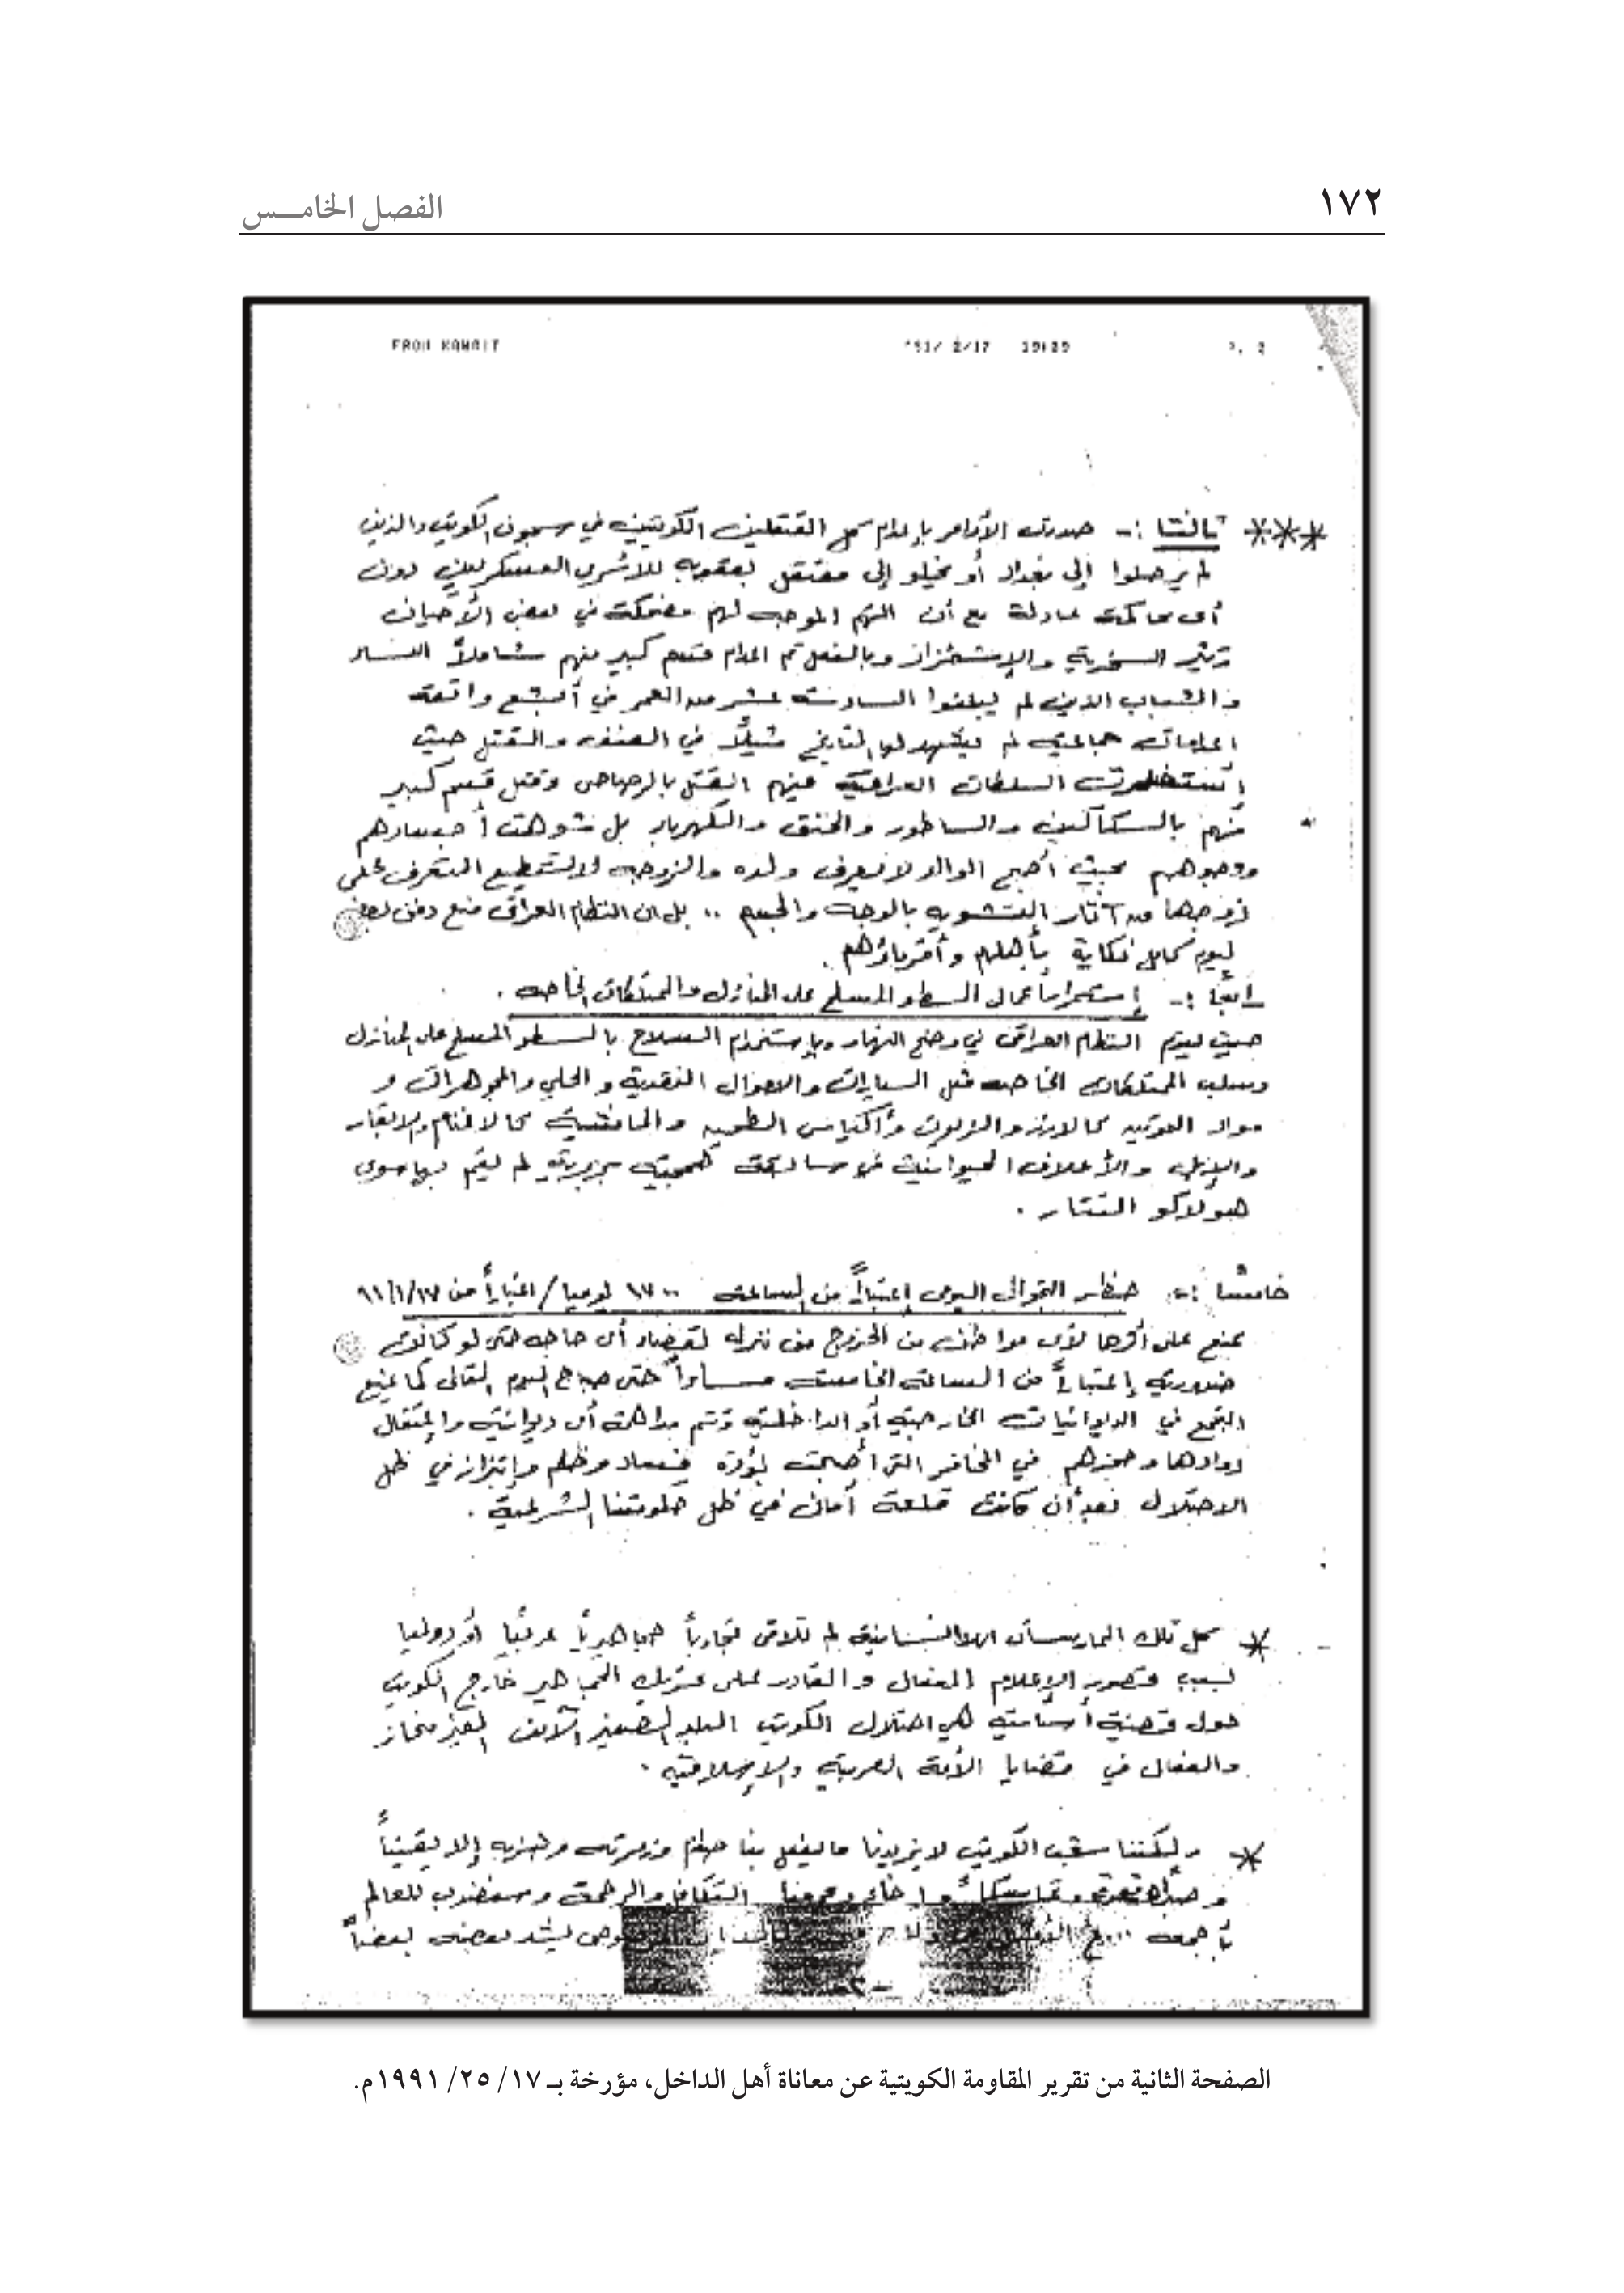 ١٧٢
الفصل الخامـــس
FROM KUWAIT '91/ 2/17 19:29 P. 2
*** ثالثا :- صدرت الأوامر بإعدام كل المعتقلين الكويتيين في سجون الكويت والذين
لم يرحلوا إلى بغداد أو يحيلو إلى معتقل بعقوبة للأسرى العسكريين دون
أى محاكمة عادلة مع أن التهم الموجهه لهم مضحكة في بعض الأحيان
تثير السخرية والإشمئزاز وبالفعل تم اعدام قسم كبير منهم شاملاً النساء
والشباب الذين لم يبلغوا السادسة عشر من العمر في أبشع واقعة
اعدامات جماعية لم يشهد لها التاريخ مثيلاً في العنف والقتل حيث
السلطات العراقية فيهم القتل بالرصاص وقتل قسم كبير
منهم بالسكاكين والساطور والخنق والكهرباء بل شوهت أجسادهم
ووجوههم بحيث أصبح الوالد لا يعرف ولده والزوجه لا تستطيع التعرف على
زوجها من آثار التشويه بالوجه والجسم .. بل ان النظام العراقى منع دفن بعض
ليوم كامل نكاية بأهلهم وأقرباؤهم .
رابعًا :- إستمرار أعمال السطو المسلح على المنازل والممتلكات الخاصه .
حيث يقوم النظام العراقى في وضح النهار وبإستخدام السلاح بالسطو المسلح على المنازل
وسلب الممتلكات الخاصه مثل السيارات والاموال النقدية و الحلي والمجوهرات و
مواد التموين كالارز والزيوت وأكياس الطحين والماشية كالاغنام والابقار
والإبل والأعلاف الحيوانية في سابقة همجية بربرية لم يقم بها سوى
هولاكو التتار .
خامسًا :- حظر التجوال اليومى إعتباراً من الساعه ١٧٠٠ يوميا / اعتباراً من ٩١/١/١٧
يمنع على أثرها لأى مواطن من الخروج من منزله لقضاء أى حاجه حتى لو كانت
ضرورية إعتباراً من الساعه الخامسه مساءاً حتى صباح اليوم التالى كما يمنع
التجمع في الديوانيات الخارجية أو الداخلية وتتم مداهمة أى ديوانية وإعتقال
روادها وحجزهم في المخافر التى أصبحت بؤرة فساد وظلم وإبتزاز في ظل
الاحتلال بعد أن كانت قلعة أمان في ظل حكومتنا الشرعية .
* كل تلك الممارسات اللاإنسانية لم تلاقى تجاوباً جماهيرياً عربيًا أو دوليا
بسبب قصور الإعلام الفعال والقادر على تحريك الجماهير خارج الكويت
حول قضية أساسية هي احتلال الكويت البلد الصغير الآمن الغير منحاز
والفعال في قضايا الأمة العربية والإسلامية .
* ولكننا شعب الكويت لا يزيدنا ما يفعل بنا صدام وزمرته وحزبه إلا يقيناً
وتماسكاً وإخاء التكافل والرحمة وسنضرب للعالم
بأجمعه يشد بعضه بعضاً
الصفحة الثانية من تقرير المقاومة الكويتية عن معاناة أهل الداخل، مؤرخة بـ ١٧/ ٢٥/ ١٩٩١م.